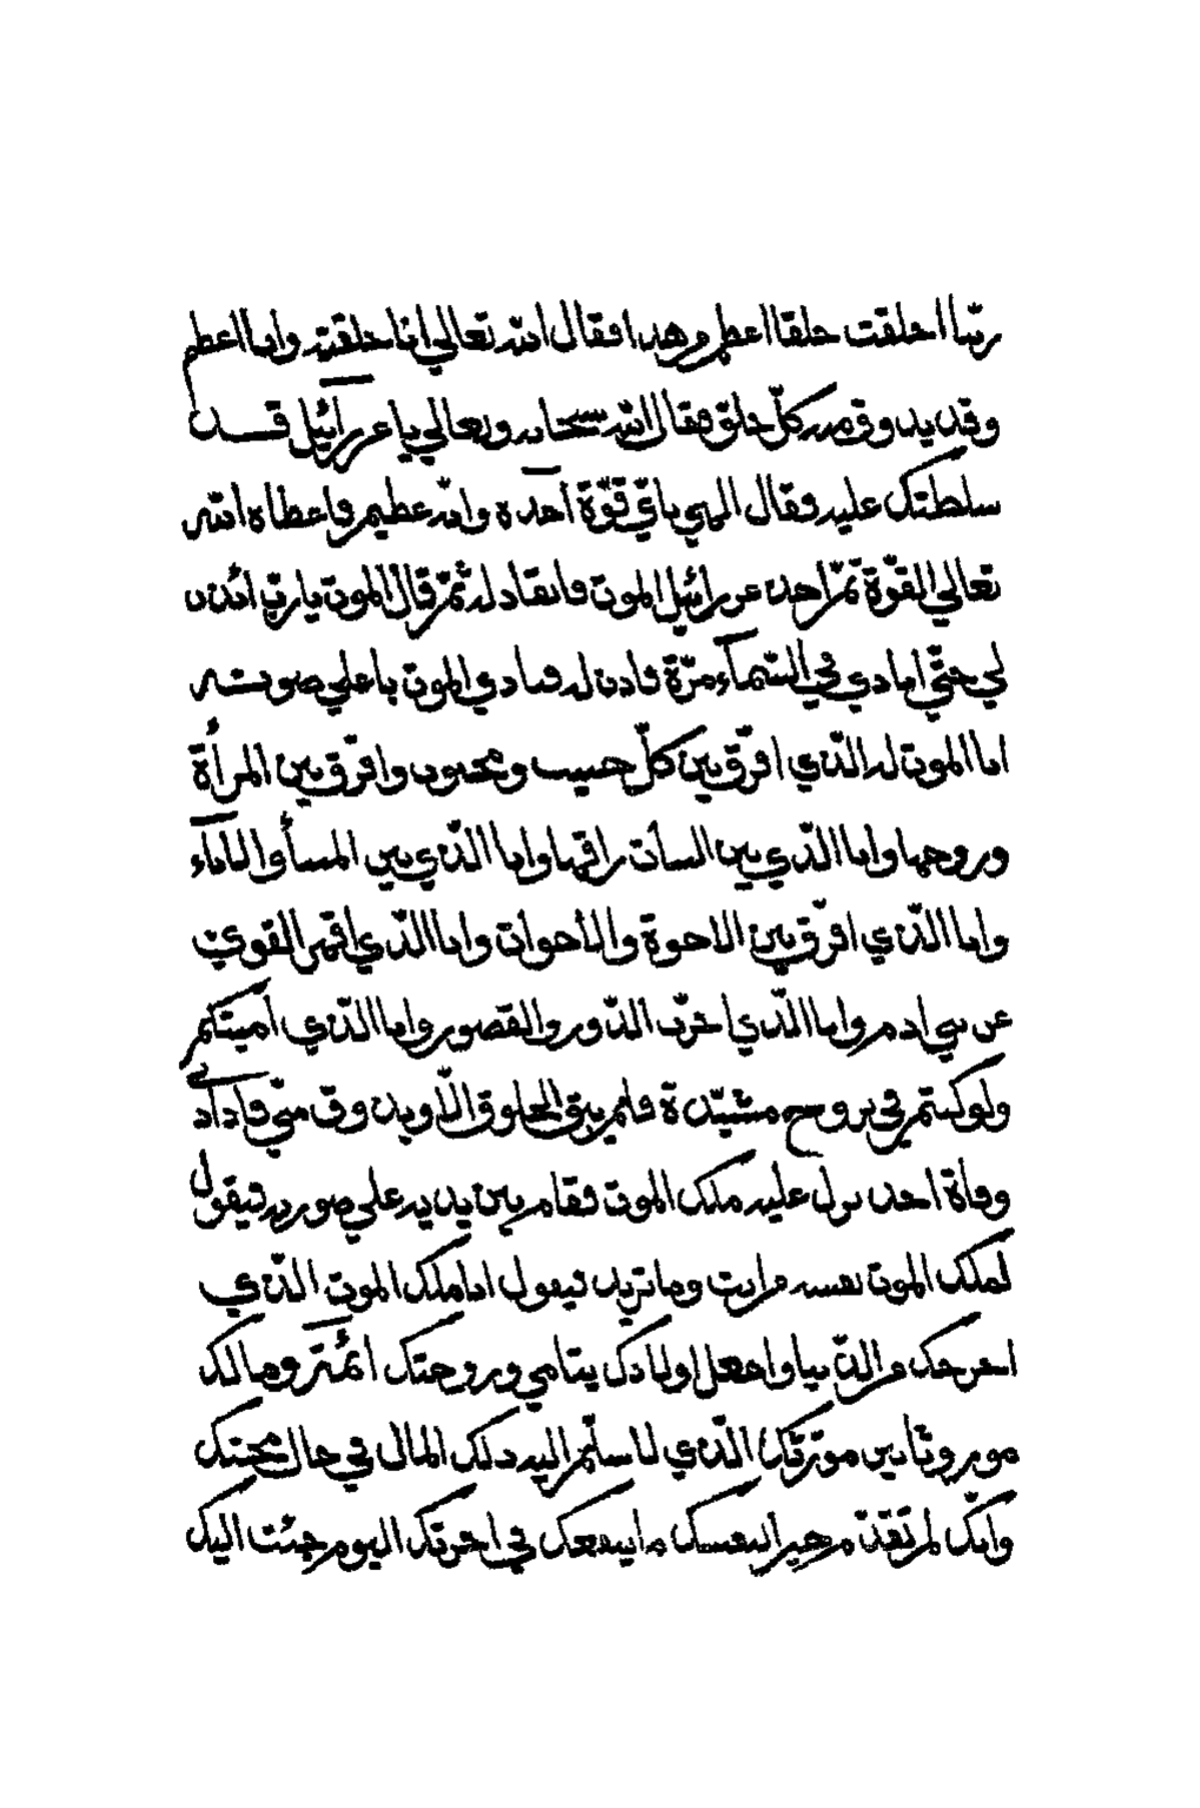 ربّنا اخلقت خلقا اعظم من هذا فقال الله تعالي انا خلقته وانا اعظم
وقد يذوق منه كلّ خلق فقال الله سبحانه وتعالي يا عزرآئيل قد
سلطتك عليه فقال الهي باىّ قوّة آخذه وانّه عظيم فاعطاه الله
تعالي القوّة ثمّ اخذ عزرائيل الموت فانقاد له ثمّ قال الموت يا ربّ ائذن
لي حتّي انادي في السّمآء مرّة فاذن له فنادي الموت باعلي صوته
انا الموت الّذي افرّق بين كلّ حبيب ومحبوب وافرّق بين المرأة
وزوجها وانا الّذي بين البنات وامّها وانا الّذي بين النسأ والابآء
وانا الّذي افرّق بين الاخوة والأخوات وانا الّذي اقهر القوي
من بني ادم وانا الّذي اخرّب الدّور والقصور وانا الّذي اميتكم
ولو كنتم في بروج مشيّدة فلم يبق المخلوق الّا ويذوق منّي فاذآ
وفاة احد نزل عليه ملك الموت فقام بين يديه علي صورته فيقول
لملك الموت نفسه من انت وما تريد فيقول انا ملك الموت الّذي
اخرجك من الدّنيا واجعل اولادك يتامي وزوجتك ائمّة ومالك
موروثا بين مورّثك الّذي لا سلّم اليه ذلك المال في حال محبّتك
وانّك لم تقدّم خيرا لنفسك ما ينفعك في اخرتك اليوم جئت اليك